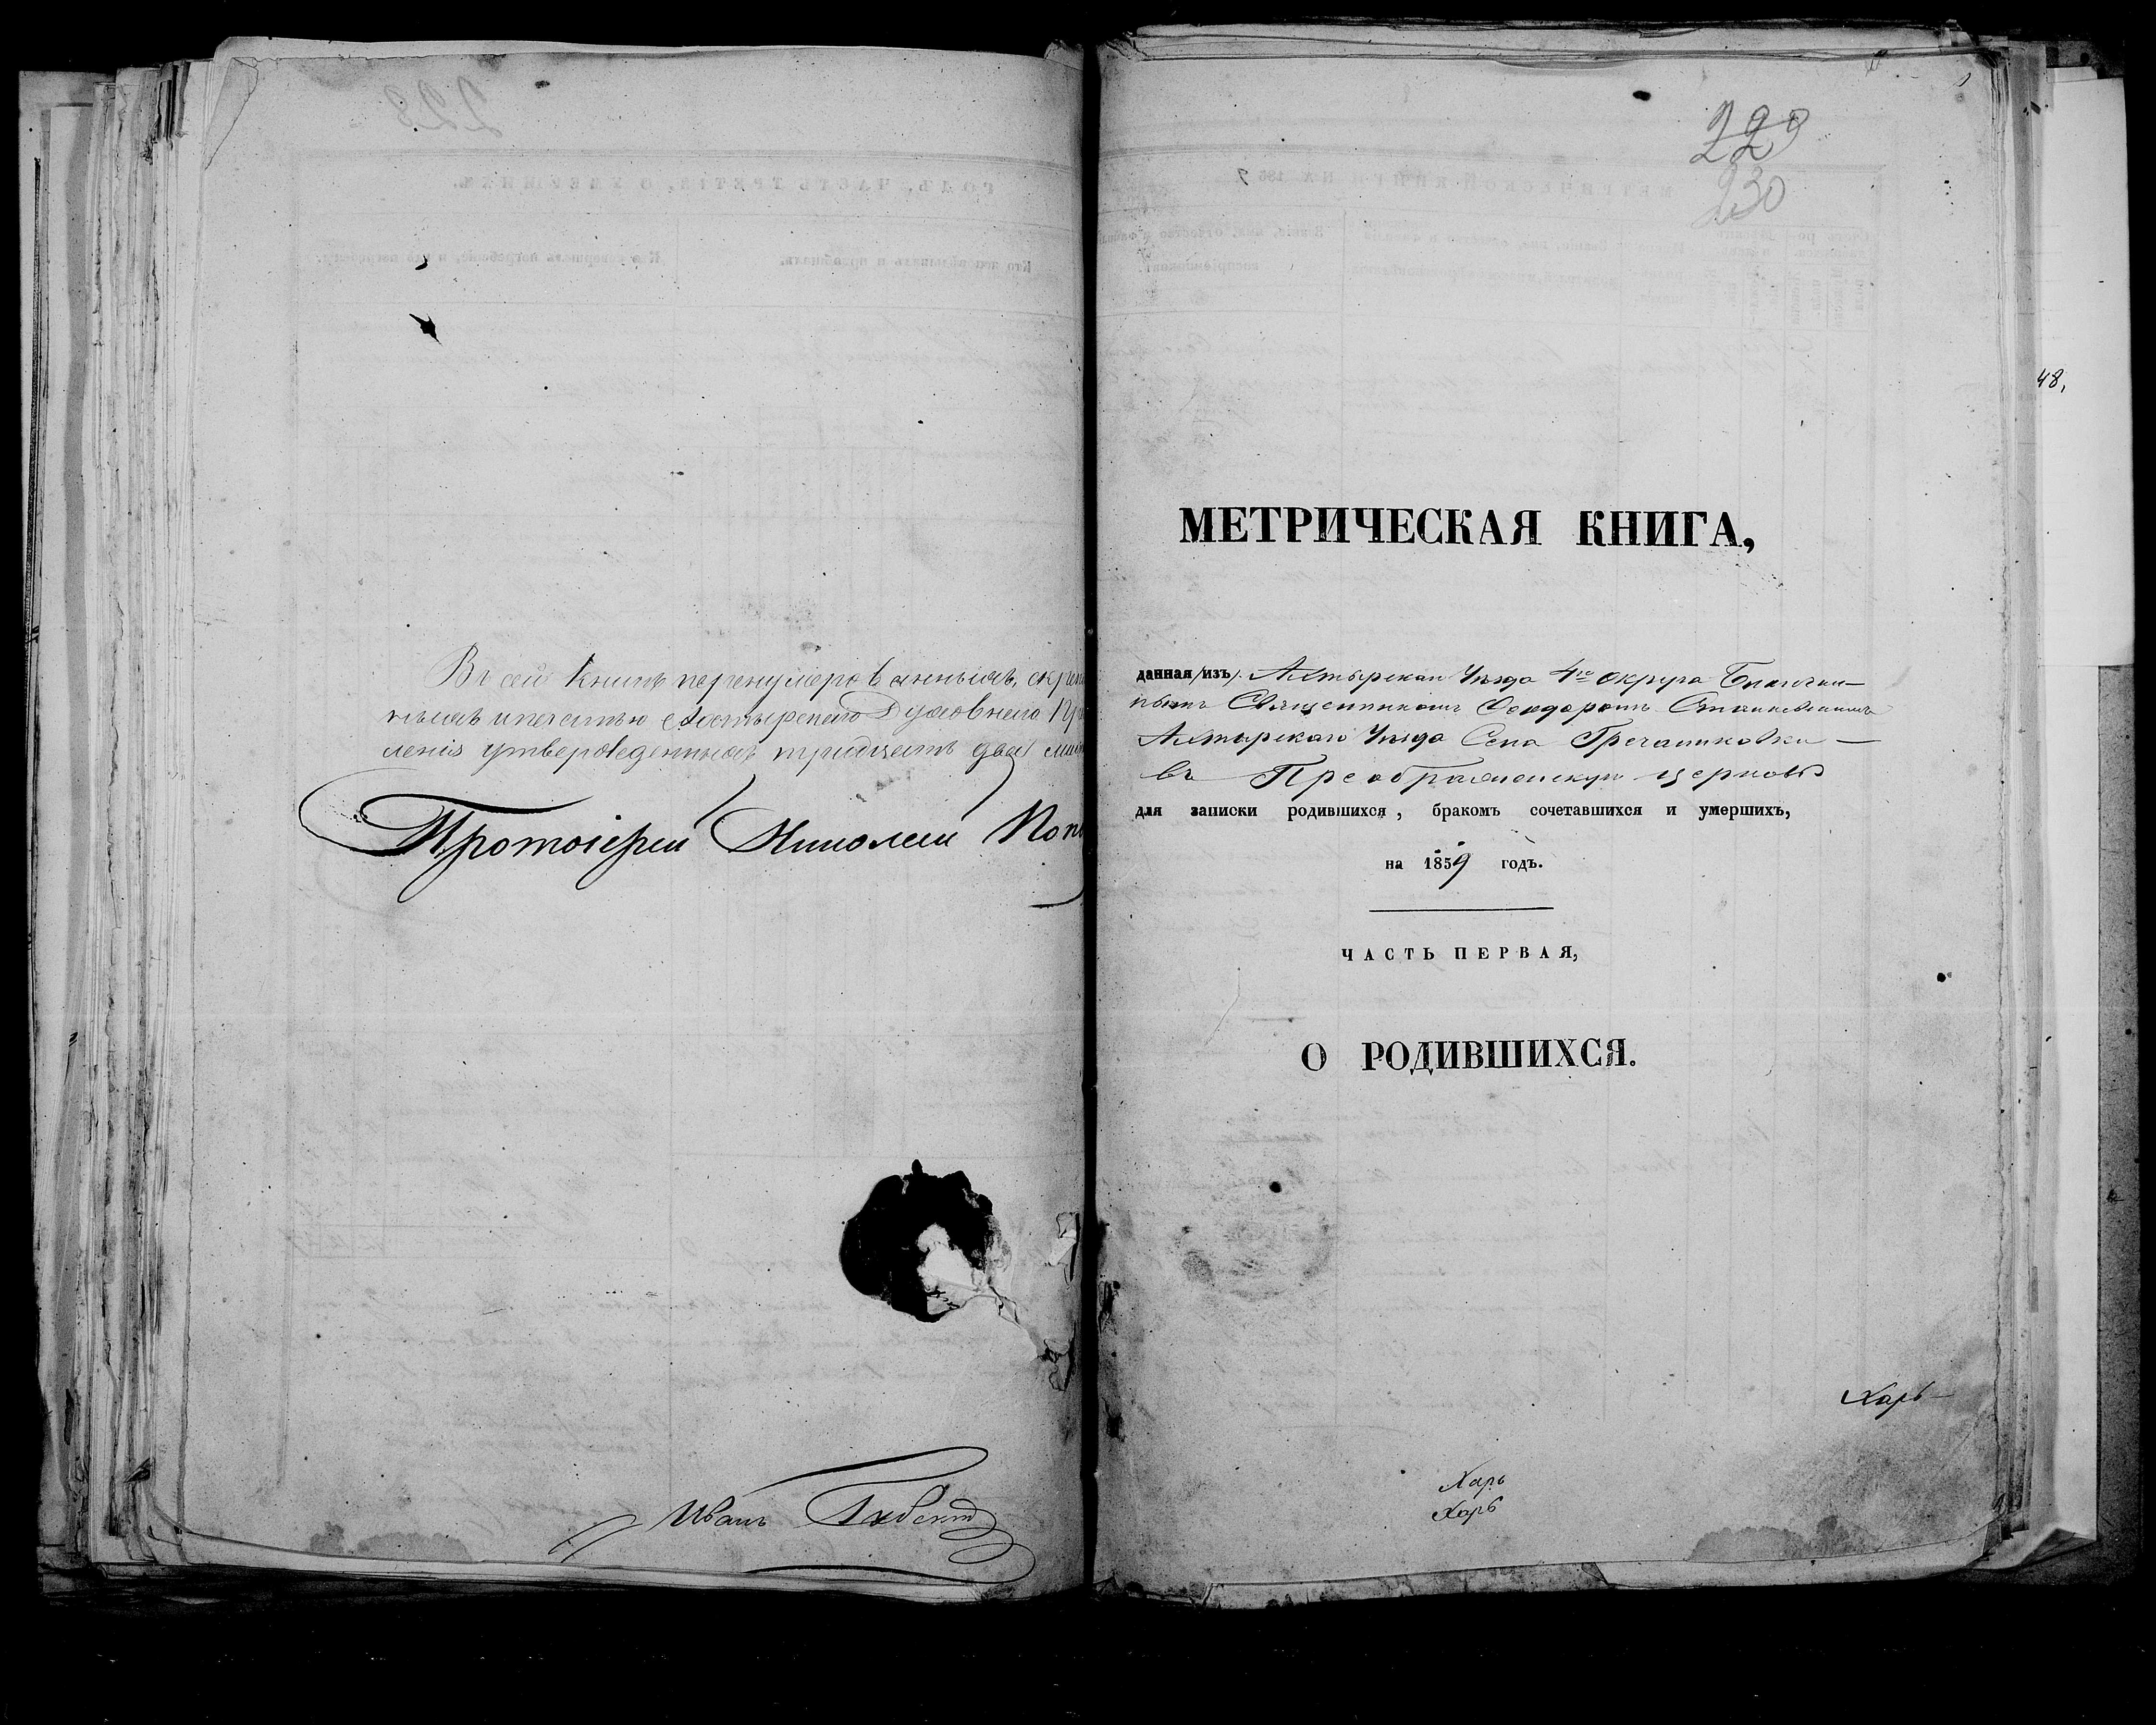 Въ сей книгѣ перенумерованныхъ, скрѣп
ныхъ и печатью Ахтырскаго Духовнаго Пра
ленія утвержденныхъ тридцать два лист
Протоіерей Николай Поп
Иванъ
229
230
48,
МЕТРИЧЕСКАЯ КНИГА,
данная изъ Ахтырскаго Уѣзда 4го округа Благочин-
нымъ Священникомъ Ѳеодоромъ Станиславскимъ
Ахтырскаго Уѣзда Села Гречаниковки —
въ Преображенскую церковь
для записки родившихся, бракомъ сочетавшихся и умершихъ,
на 1859 годъ.
ЧАСТЬ ПЕРВАЯ,
О РОДИВШИХСЯ.
Харь-
Харь
Харь